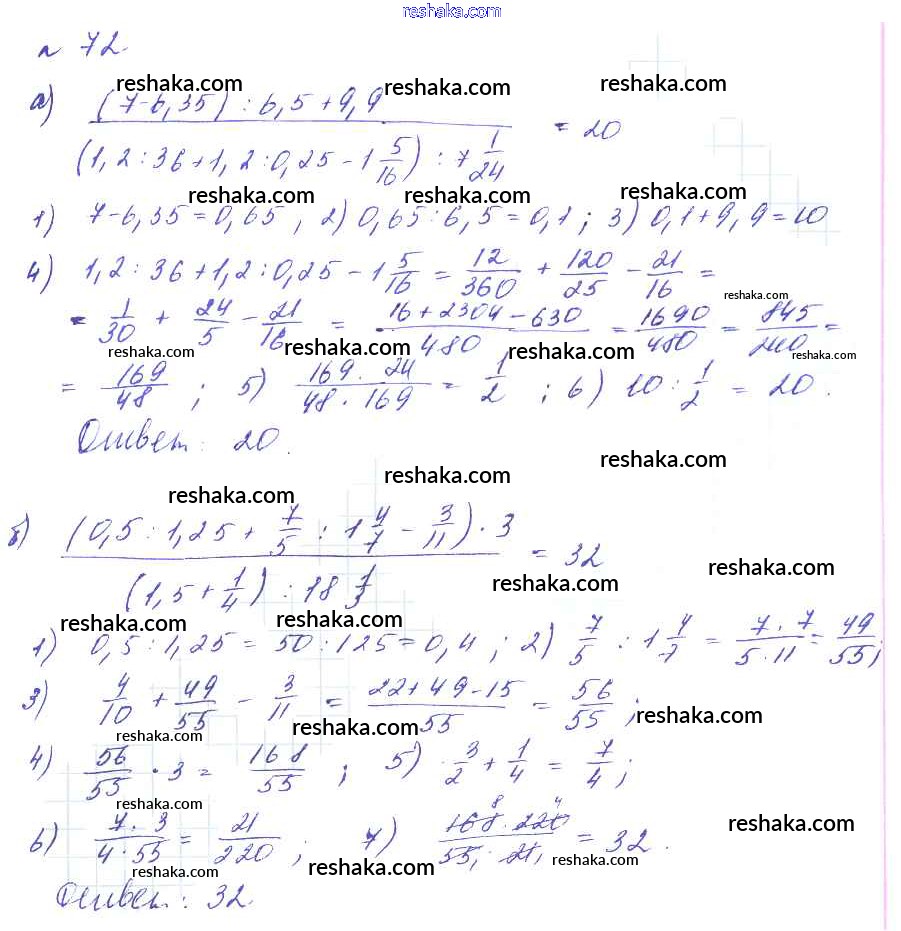 reshaka.com
№ 72.
reshaka.com reshaka.com reshaka.com
а) (7-6,35) : 6,5 + 9,9 / (1,2 : 36 + 1,2 : 0,25 - 1 5/16) : 7 1/24 = 20
reshaka.com reshaka.com reshaka.com
1) 7-6,35 = 0,65 ; 2) 0,65 : 6,5 = 0,1 ; 3) 0,1 + 9,9 = 10
4) 1,2 : 36 + 1,2 : 0,25 - 1 5/16 = 12/360 + 120/25 - 21/16 =
reshaka.com
= 1/30 + 24/5 - 21/16 = 16 + 2304 - 630 / 480 = 1690/480 = 845/240 =
reshaka.com reshaka.com reshaka.com reshaka.com
= 169/48 ; 5) 169 · 24 / 48 · 169 = 1/2 ; 6) 10 : 1/2 = 20.
Ответ: 20.
reshaka.com reshaka.com reshaka.com
б) (0,5 : 1,25 + 7/5 : 1 4/7 - 3/11) · 3 / (1,5 + 1/4) : 18 1/3 = 32
reshaka.com reshaka.com
reshaka.com reshaka.com
1) 0,5 : 1,25 = 50 : 125 = 0,4 ; 2) 7/5 : 1 4/7 = 7 · 7 / 5 · 11 = 49/55 ;
3) 4/10 + 49/55 - 3/11 = 22 + 49 - 15 / 55 = 56/55 ;
reshaka.com reshaka.com reshaka.com
4) 56/55 · 3 = 168/55 ; 5) 3/2 + 1/4 = 7/4 ;
reshaka.com reshaka.com reshaka.com
6) 7 · 3 / 4 · 55 = 21/220 ; 7) 168 8 · 220 4 / 55 1 · 21 1 = 32.
reshaka.com reshaka.com reshaka.com
Ответ: 32.